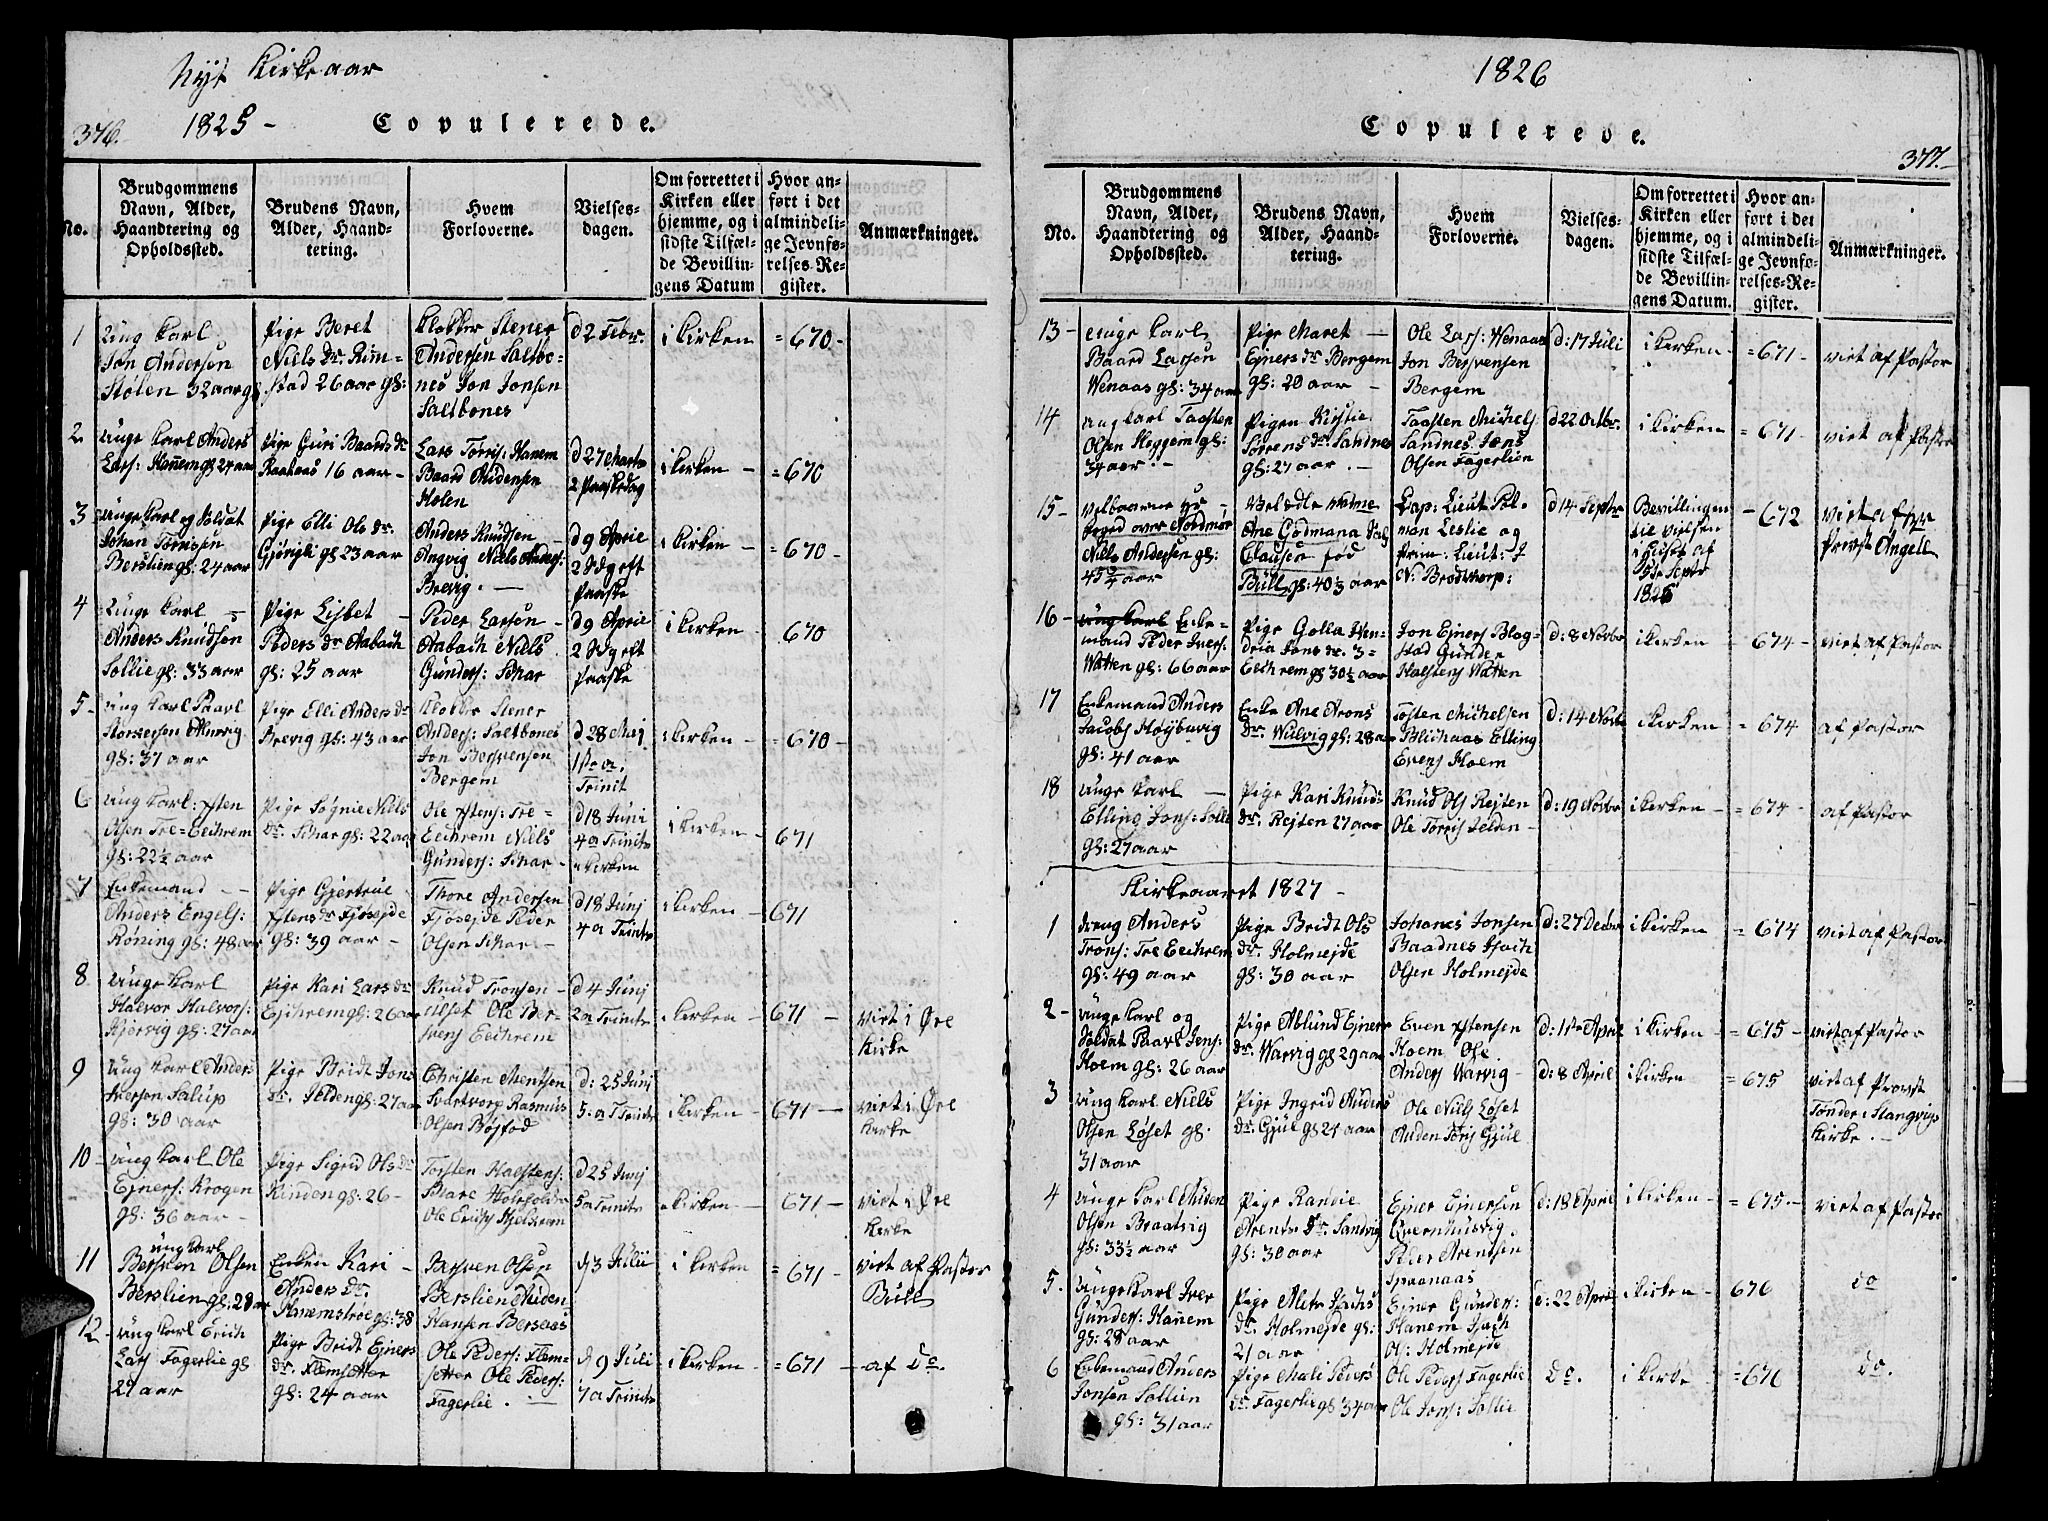 Nyt Kirkeaar
1825 -
Copulerede.
376.
No.
Brudgommens
Navn, Alder,
Haandtering og
Opholdssted.
Brudens Navn,
Alder, Haand-
tering.
Hvem
Forloverne.
Vielses-
dagen.
Om forrettet i
Kirken eller
hjemme, og i
sidste Tilfæl-
de Bevillin-
gens Datum
Hvor an-
ført i det
almindeli-
ge Jevnfø-
relses-Re-
gister.
Anmærkninger.
1
Ung Karl
Jon Andersen
Stølen 32 aar g
Pige Beret
Niels Dr. Rim-
stad 26 aar gl:
Klokker Stener
Andersen Saltbo-
nes Jon Jonsen
Saltbones
d 2 Febr.
i Kirken
= 670 -
2
Unge Karl Anders
Lars: Hanem gl 24 aar
Pige Guri Baards Dr
Raahaas 16 aar -
Lars Torris: Hanem
Baard Audensen
Holen
d 27 Marts
2 Paaskedag
i Kirken -
= 670
3
Unge Karl og Soldat
Johan Torrisen
Berslien gl: 24 aar
Pige Elli Ols Dr.
Gjørigli gl 23 aar
Anders Knudsen
Angvig Niels Anders:
Brevig. -
d 9 Aprie
2 Sdg eft
Paaske
i Kirken -
= 670 -
4
Unge Karl -
Anders Knudsen
Sollie gl: 33 aar
Pige Lisbet -
Peders Dr Aabach
gl: 25 aar
Peder Larsen -
Aabach Niels
Gunders: Schar
d 9 Aprie
2 Sdg eft
Paaske
i Kirken -
670
5 -
Ung Karl Paavl
gl: 37 aar
Pige Elli Anders Dr
Brevig gl: 43 aar
Klokker Stener
Anders: Saltbones
Jon Bersvensen
Bergem
d 28 Maj
Trinit
i Kirken -
= 670 -
6
Ung Karl: Isten
Olsen Tre=Eechrem
gl: 22½ aar
Pige Signie Niels
Dr. Schar gl: 22 aar
Ole Istens: Tre=
Eechrem Niels
Gunders: Schar -
d 18 Juni
4 a Trinits
i Kirken
i Kirken -
671
7
Enkemand - -
Anders Engels:
Røning gl: 48 aar
Pige Gjertrue -
Istens Dr Fjøsejde
gl: 39 aar -
Thore Andersen
Fjøsejde Peder
Olsen Schar -
d 18 Junj
4 a Trinits
i Kirken -
671
8
Unge Karl
Halvor Halvors:
Hjervig gl: 27 aar
Pige Kari Lars Dr
Ejchrem gl: 26 aar
Knud Tronsen -
Ulset Ole Ber-
svens Eechrem
d 4 Junj
2 a Trinits
i Kirken -
671 -
viet i Øre
Kirke
9
Ung Karl Anders
Iversen Salup
gl: 30 aar
Pige Bridt Jons
Dr. Jelden gl: 27 aar
Christen Mentsen
Svartvorp Rasmus
Olsen Bøjfod
d: 25 Juni
5: a Trinits
i Kirken -
= 671 -
viet i Øre
Kirke
10 -
Ung Karl Ole
Ejners: Krogen
gl: 36 aar -
Pige Sigrid Ols Dr
Rinden gl: 26 -
Torsten Halstens:
d 25 Junj
5 a Trinits
i Kirken -
671 -
viet i Øre
Kirke
11
Ung Karl
Bersven Olsen
Berslien gl: 28 aar
Enken Kari -
Anders Dr.
Hanemstrøe gl: 38
Bersven Olsen
Berslien Auden
Hansen Bersaas
d 3 Julii
i Kirken
= 671 -
viet af Pastor
Bull
12 -
Ung Karl Erich
Lars Fagerlie gl
27 aar
Pige Bridt Ejners
Dr. Flemsetter
gl: 24 aar
Ole Peders: Flem-
setter Ole Peders:
Fagerlie. -
d 9 Juli
7 a Trinits
i Kirken -
= 671 -
af Do.
1826
Copulerede.
377.
No.
Brudgommens
Navn, Alder,
Haandtering og
Opholdssted.
Brudens Navn,
Alder, Haand-
tering.
Hvem
Forloverne.
Vielses-
dagen.
Om forrettet i
Kirken eller
hjemme, og i
sidste Tilfæl-
de Bevillin-
gens Datum.
Hvor an-
ført i det
almindeli-
ge Jevnfø-
relses-Re-
gister.
Anmærkninger.
13 -
Unge Karl
Baard Larsen
Wenaas gl: 34 aar
Pige Maret -
Ejners Dr Bergem
gl: 20 aar -
Ole Lars: Wenaas
Jon Bersvensen
Bergem
d: 17 Juli
i Kirken -
= 671 -
viet af Pastor
14
Ung Karl Taasten
Olsen Heggem gl:
34 aar. -
Pigen Kirstie
Sørrens Dr: Sandnes
gl: 27 aar. -
Taasten Michels:
Sandnes Jens
Olsen Fagerlien
d 22 Octbr:
i Kirken
= 671 -
viet af Pastor
15 -
Velbaarne Hr
Foged over Nordmør
Niels Andersen gl:
45¾ aar
Vel Ædle Madme
Ane Godmana Salg
Clausen fød
Bull gl: 40⅓ aar
Cap: Lieut Pet-
man Leslie og
Prim: Lieut: I
N: Brodtkorp:
d 14 Septbr
Bevillingen
til Vielsen
i Huset af
5de Septr
1826
- 672
viet af Hr
Provst Angell
16 -
Ung Karl Enke-
mand Peder Ivers:
Watten gl: 66 aar
Pige Golla Hen-
dria Jons Dr. 3=
Eechrem gl 30½ aar
Jon Ejners Blog-
stad Gunder
Halstens Watten
d: 8 Novbr
i Kirken -
674 -
viet af Pastor
17
Enkemand Anders
Jacobs Højbuvig
gl: 41 aar
Enke Ane Arons
Dr. Wulvig gl: 28 aar
Tosten Michelsen
Blichaas Elling
Evens Hoem
d: 14 Novbr
i Kirken -
= 674
af Pastor
18
Unge Karl -
Elling Jons: Solli
gl: 27 aar
Pige Kari Knuds
Dr. Rejten 27 aar
Knud Ols Rejten
Ole Torris Jelden -
d: 19 Novbr
i Kirken -
= 674 -
af Pastor
Kirkeaaret 1827 -
1
Ung Anders
Trons: Tre Eechrem
gl: 49 aar
Pige Bridt Ols
Dr. Holmejde
gl: 30 aar
Johanes Jonsen
Baadnes Isach
Olsen Holmejde
d: 27 Decbr
i Kirken
= 674
viet af Pastor
2 -
Unge Karl og
Soldat Paavl Jens:
Hoem gl: 26 aar
Pige Ablund Ejners
Dr. Warvig gl 29 aar
Even Istensen
Hoem Ole
Anders Warvig -
d: 1ste April
i Kirken -
= 675 -
viet af Pastor
3
Ung Karl Niels
Olsen Løset gl.
31 aar
Pige Ingrid Anders
Dr. Gjul gl 24 aar
Ole Niels Løset
Anden Toris Gjul
d: 8 April
i Kirken
= 675
viet af Provst
Tønder i Stangvigs
Kirke. -
4
Unge Karl Auden
Olsen Braatvig
gl: 33½ aar
Pige Randie
Arents Dr. Sandvig
gl: 30 aar
Ejner Ejnersen
Qvernhusvig
Peter Arentsen
Spaanaas
d: 18 April
i Kirken -
= 675 -
viet af Pastor
5.
Unge Karl Iver
Gunders: Hanem
gl: 28 aar
Pige Marte Isachs
Dr. Holmejde gl:
21 aar
Ejner Gunders:
Hanem Isach
Ols: Holmejde
d: 22 April
i Kirken -
676
do
6
Enkemand Anders
Jonsen Sollien
gl: 31 aar
Pige Mali Peders
Dr. Fagerlie gl 34 aar
Ole Peders Fagerlie
Ole Jons: Sollie
Do.
i Kirke
= 676
do.